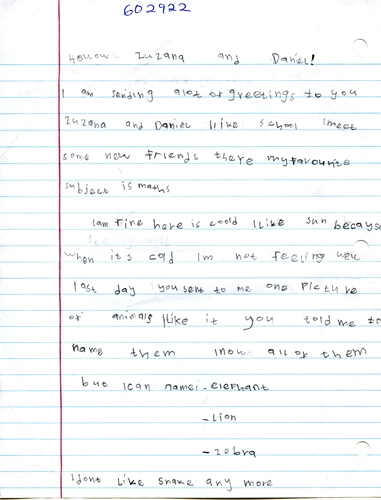 602922
Hellow Zuzana and Daniel!
I am sending alot of greetings to you
Zuzana and Daniel Ilike school Imeet
some new friends there myfavourite
subject is maths
Iam fine here is coold Ilike sun because
when it's cold Im not feeling well
last day you sent to me one Picture
of animals Ilike it you told me to
name them Inow all of them
but Ican name:- elephant
- Lion
- zebra
Idont like snake any more